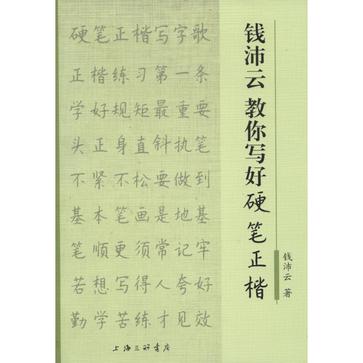 硬笔正楷写字歌
正楷练习第一条
学好规矩最重要
头正身直斜执笔
不紧不松要做到
基本笔画是地基
笔顺更须常记牢
若想写得人夸好
勤学苦练才见效
钱沛云 教你写好硬笔正楷
钱沛云 著
上海三联书店